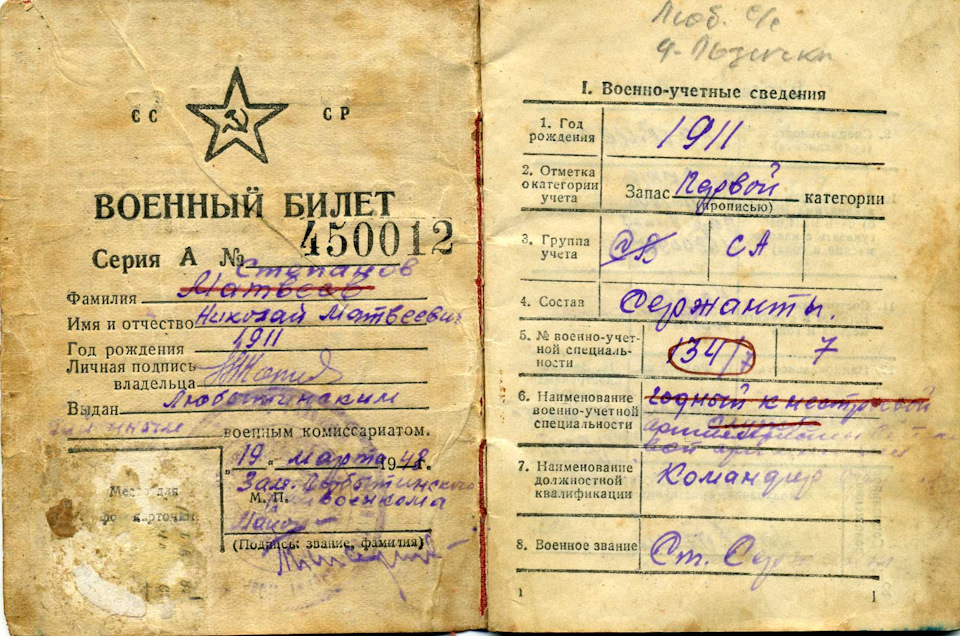 СС СР
ВОЕННЫЙ БИЛЕТ
Серия А № 450012
Степанов
Фамилия Матвеев
Имя и отчество Николай Матвеевич
Год рождения 1911
Личная подпись
владельца
Выдан Любытинским
военным комиссариатом.
„19„ марта 1948 г.
Зам. Любытинского
М. П. военкома
Майор
(Подпись: звание, фамилия)
Место для
фотокарточки
Люб. с/с
I. Военно-учетные сведения
1. Год
рождения
1911
2. Отметка
о категории
учета
Запас Первой категории
(прописью)
3. Группа
учета
СА
4. Состав
Сержанты.
5. № военно-учет-
ной специаль-
ности
134/7
7
6. Наименование
военно-учетной
специальности
годный к нестроевой
службе
7. Наименование
должностной
квалификации
Командир
8. Военное звание
Ст. Сержант
1
1